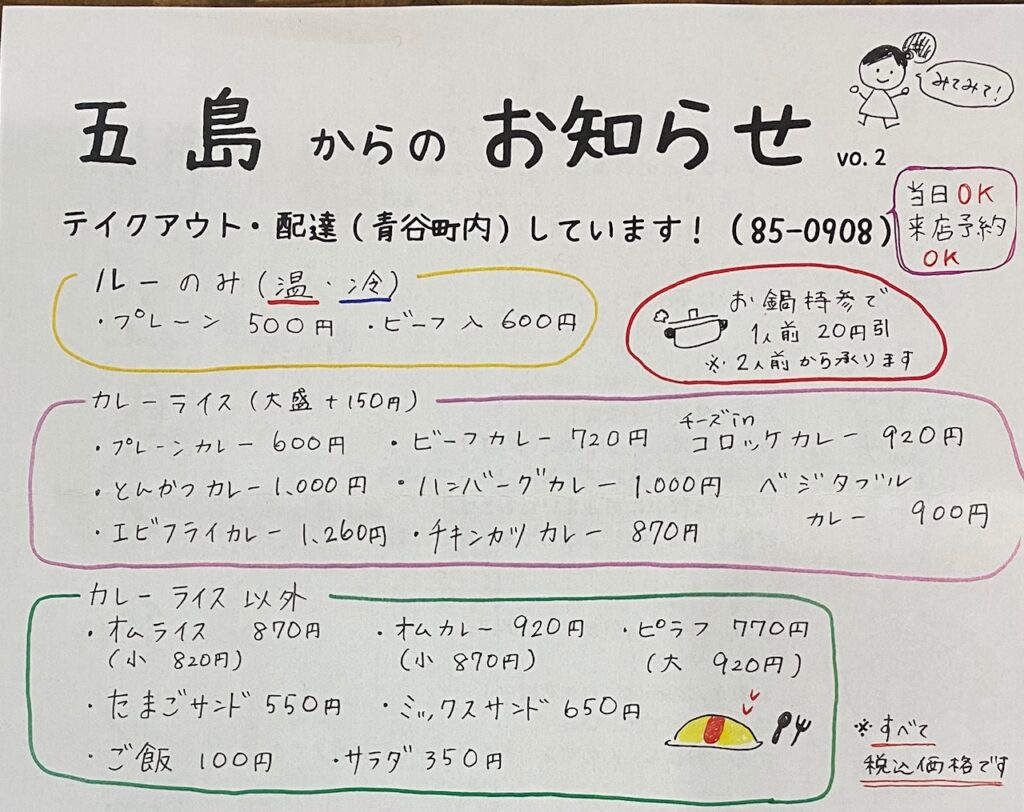 みてみて!
五島からのお知らせ vo.2
テイクアウト・配達(青谷町内)しています!(85-0908)
当日OK
来店予約
OK
ルーのみ(温・冷)
・プレーン 500円 ・ビーフ入 600円
お鍋持参で
1人前 20円引
※2人前から承ります
カレーライス(大盛+150円)
・プレーンカレー 600円 ・ビーフカレー 720円 チーズin コロッケカレー 920円
・とんかつカレー 1,000円 ・ハンバーグカレー 1,000円 ベジタブル
カレー 900円
・エビフライカレー 1,260円 ・チキンカツカレー 870円
カレーライス以外
・オムライス 870円 ・オムカレー 920円 ・ピラフ 770円
(小 820円) (小 870円) (大 920円)
・たまごサンド 550円 ・ミックスサンド 650円
・ご飯 100円 ・サラダ 350円
※すべて
税込価格です